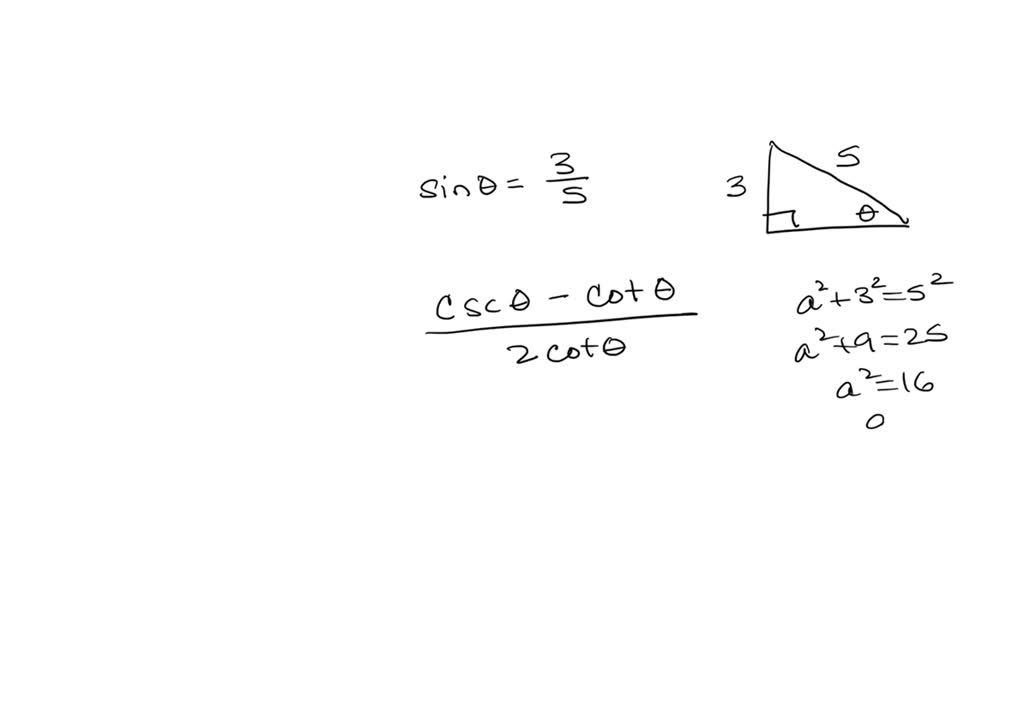 sinθ = 3/5
3
5
θ
cscθ - cotθ
2cotθ
a²+3²=5²
a²+9=25
a²=16